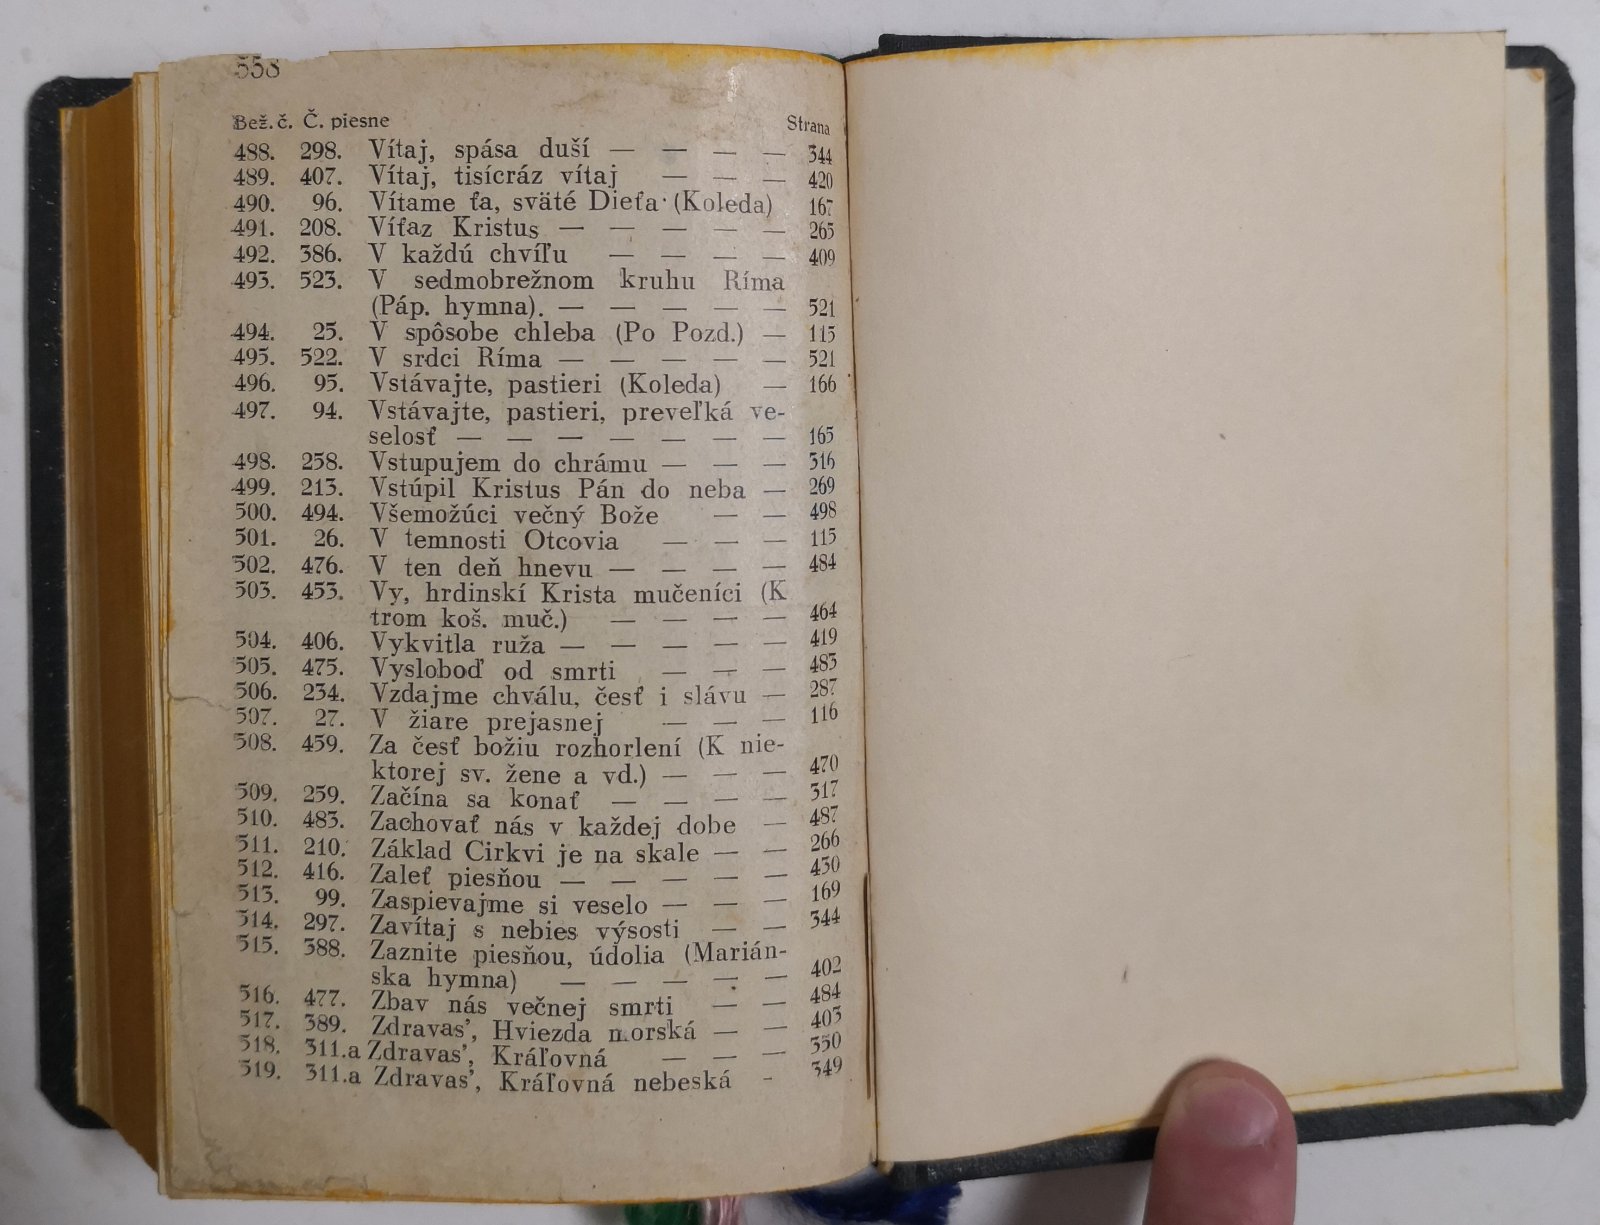 558
Bež. č. Č. piesne Strana
488. 298. Vítaj, spása duší — — — — 344
489. 407. Vítaj, tisícráz vítaj — — — 420
490. 96. Vítame ťa, sväté Dieťa (Koleda) 167
491. 208. Víťaz Kristus — — — — — 265
492. 386. V každú chvíľu — — — — 409
493. 523. V sedmobrežnom kruhu Ríma
(Páp. hymna). — — — — — 521
494. 25. V spôsobe chleba (Po Pozd.) — 115
495. 522. V srdci Ríma — — — — — 521
496. 95. Vstávajte, pastieri (Koleda) — 166
497. 94. Vstávajte, pastieri, preveľká ve-
selosť — — — — — — — 165
498. 258. Vstupujem do chrámu — — — 316
499. 213. Vstúpil Kristus Pán do neba — 269
500. 494. Všemožúci večný Bože — — 498
501. 26. V temnosti Otcovia — — — 115
502. 476. V ten deň hnevu — — — — 484
503. 453. Vy, hrdinskí Krista mučeníci (K
trom koš. muč.) — — — — 464
504. 406. Vykvitla ruža — — — — — 419
505. 475. Vysloboď od smrti — — — 483
506. 234. Vzdajme chválu, česť i slávu — 287
507. 27. V žiare prejasnej — — — 116
508. 459. Za česť božiu rozhorlení (K nie-
ktorej sv. žene a vd.) — — — 470
509. 259. Začína sa konať — — — — 317
510. 483. Zachovať nás v každej dobe — 487
511. 210. Základ Cirkvi je na skale — — 266
512. 416. Zaleť piesňou — — — — — 430
513. 99. Zaspievajme si veselo — — — 169
514. 297. Zavítaj s nebies výsosti — — 344
515. 388. Zaznite piesňou, údolia (Marián-
ska hymna) — — — — — 402
516. 477. Zbav nás večnej smrti — — 484
517. 389. Zdravas’, Hviezda morská — — 403
518. 311.a Zdravas’, Kráľovná — — — 350
519. 311.a Zdravas’, Kráľovná nebeská - 349